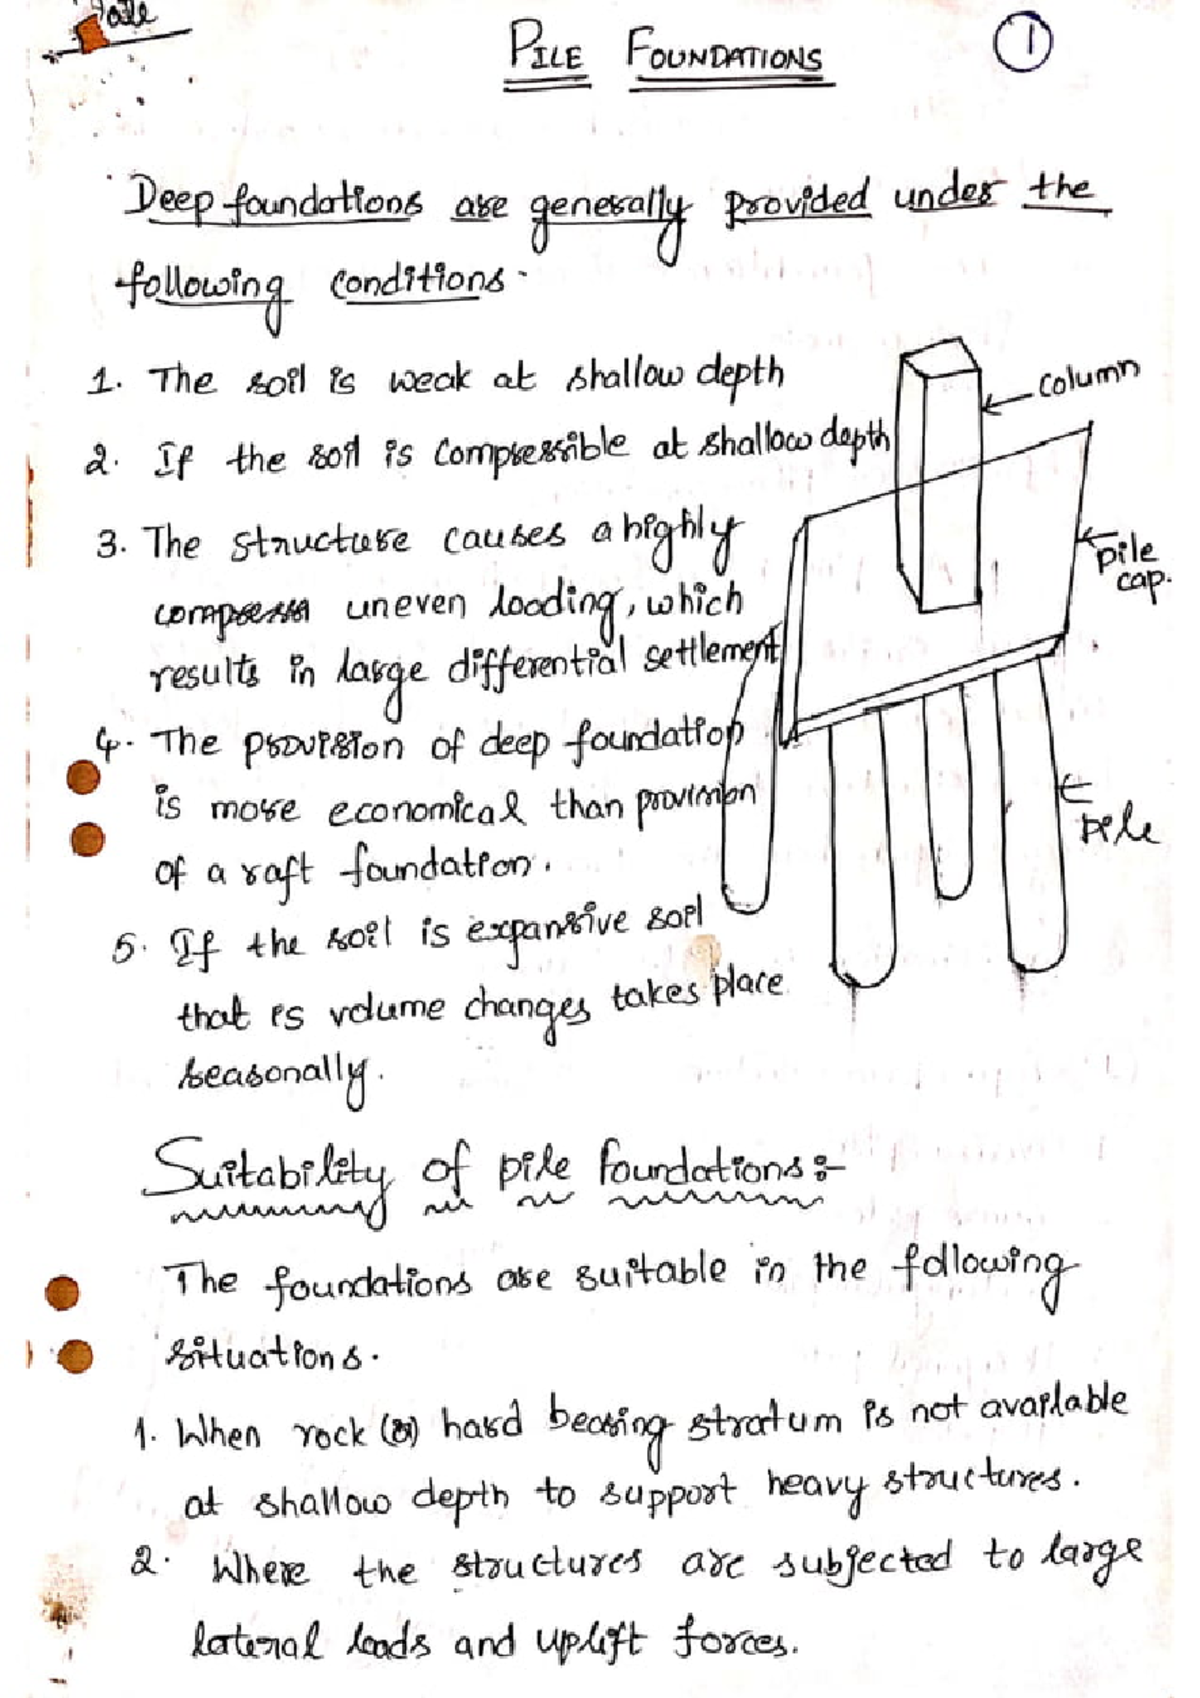 PILE FOUNDATIONS
1
Deep foundations are generally provided under the
following conditions.
1. The soil is weak at shallow depth
2. If the soil is compressible at shallow depth
3. The structure causes a highly
uneven loading, which
results in large differential settlement
4. The provision of deep foundation
is more economical than provision
of a raft foundation.
5. If the soil is expansive soil
that is volume changes takes place
seasonally.
column
pile
cap.
pile
Suitability of pile foundations:-
The foundations are suitable in the following
situations.
1. When rock (or) hard bearing stratum is not available
at shallow depth to support heavy structures.
2. Where the structures are subjected to large
lateral loads and uplift forces.